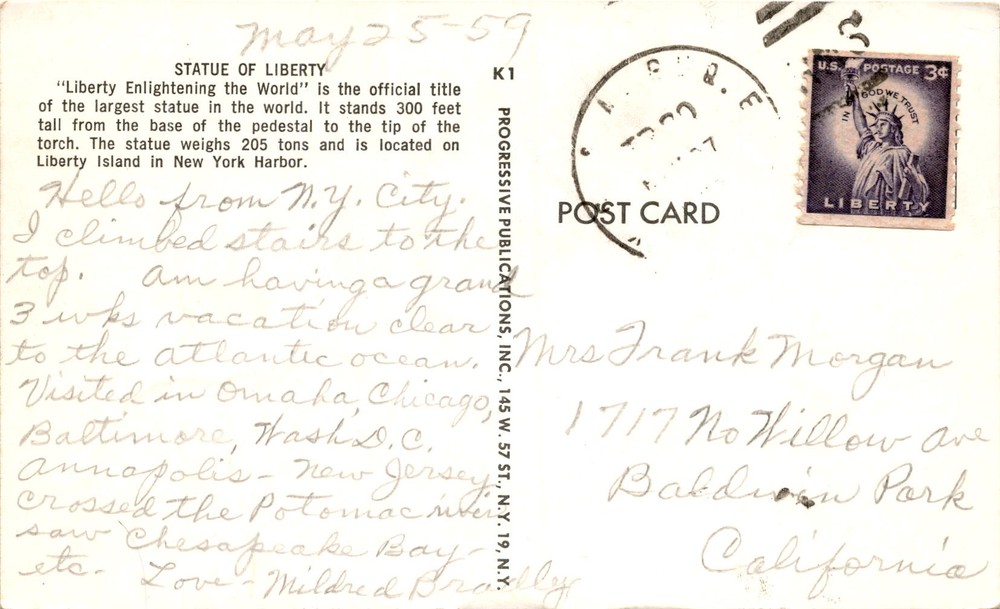 May 25-59
STATUE OF LIBERTY
"Liberty Enlightening the World" is the official title
of the largest statue in the world. It stands 300 feet
tall from the base of the pedestal to the tip of the
torch. The statue weighs 205 tons and is located on
Liberty Island in New York Harbor.
Hello from N.Y. City.
I climbed stairs to the
top. Am having a grand
3 wks vacation clear
to the Atlantic ocean.
Visited in Omaha, Chicago,
Baltimore, Wash D.C.
Annapolis - New Jersey
crossed the Potomac river
saw Chesapeake Bay -
etc. Love - Mildred Bradley
K1 PROGRESSIVE PUBLICATIONS, INC., 145 W. 57 ST., N.Y. 19, N.Y.
POST CARD
U.S. POSTAGE 3¢
IN GOD WE TRUST
LIBERTY
Mrs Frank Morgan
1717 No Willow Ave
Baldwin Park
California